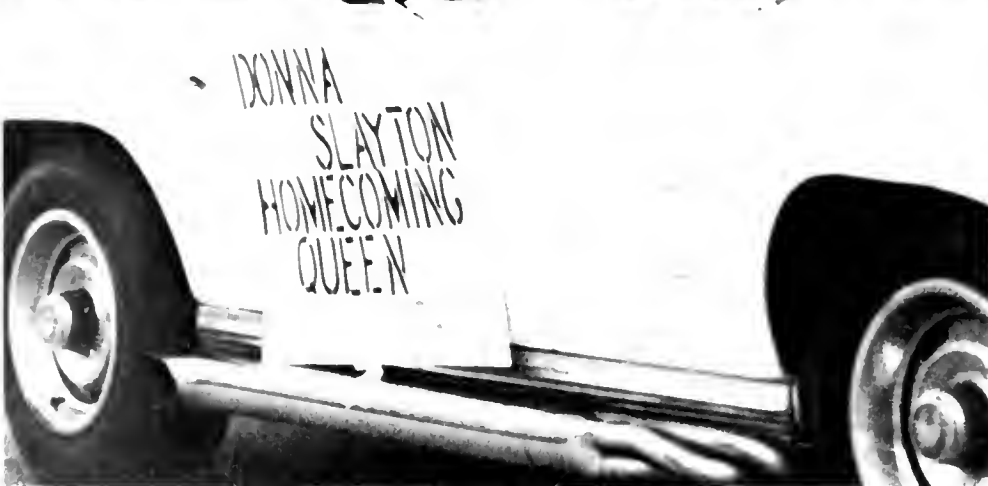 DONNA
SLAYTON
HOMECOMING
QUEEN